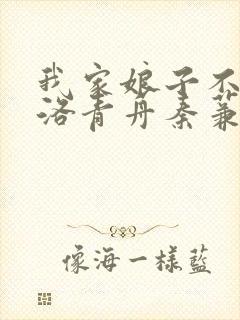 我家娘子不
洛青丹秦蒹
像海一樣藍